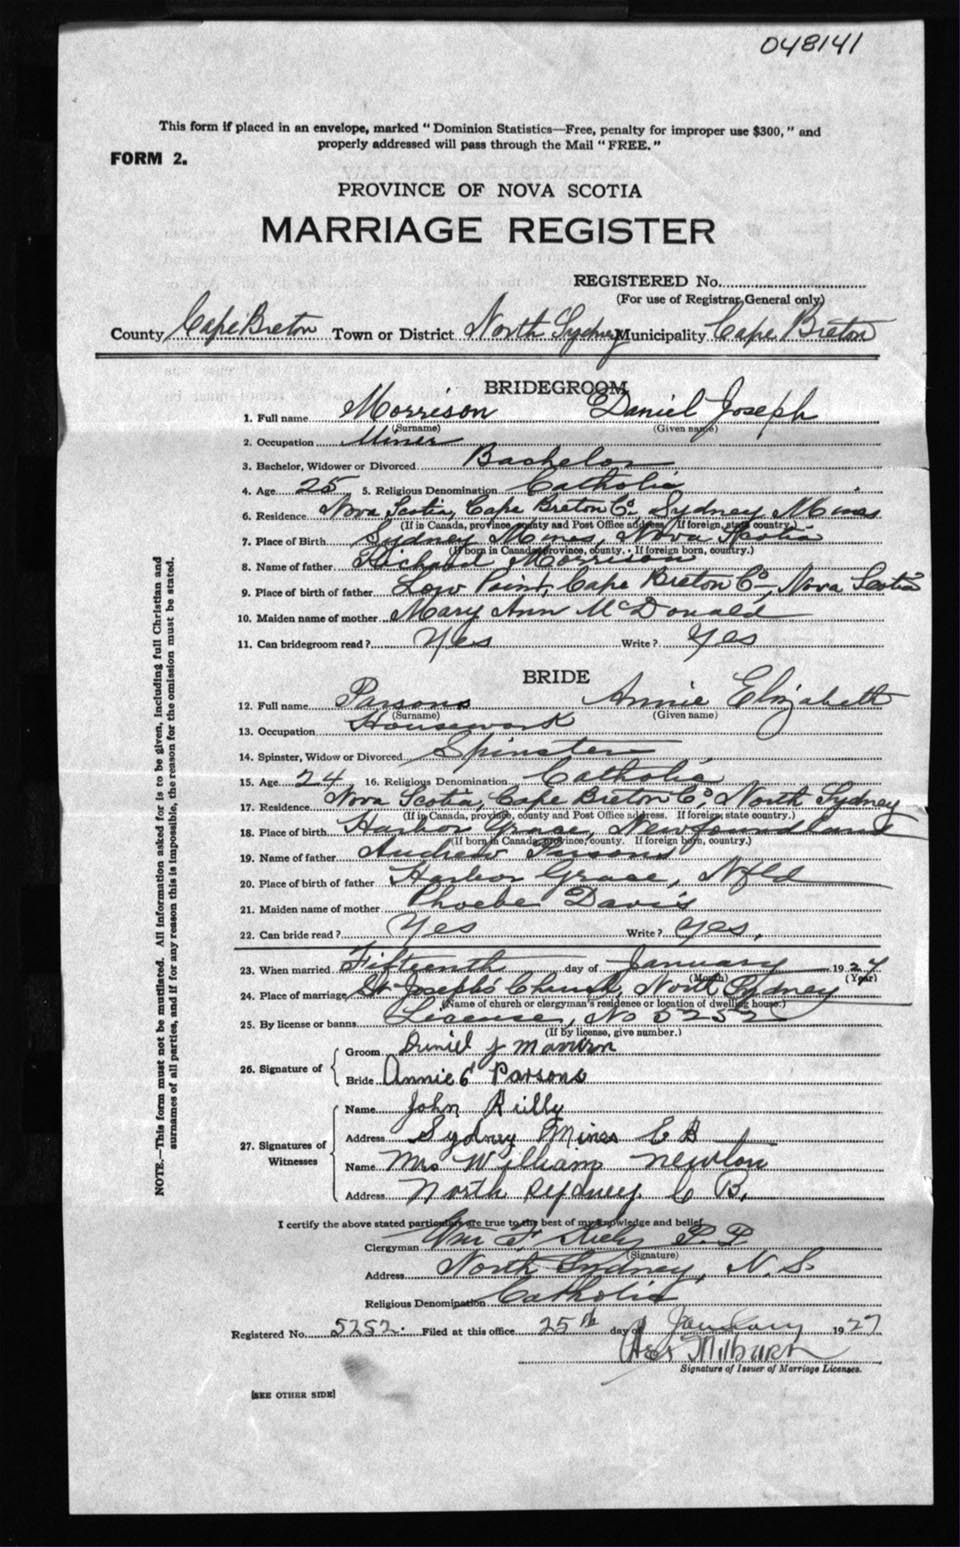 048141
This form if placed in an envelope, marked " Dominion Statistics—Free, penalty for improper use $300, " and
properly addressed will pass through the Mail " FREE. "
FORM 2.
PROVINCE OF NOVA SCOTIA
MARRIAGE REGISTER
REGISTERED No.
(For use of Registrar General only)
County Cape Breton Town or District North Sydney Municipality Cape Breton
BRIDEGROOM
1. Full name Morrison Daniel Joseph
(Surname) (Given name)
2. Occupation Miner
3. Bachelor, Widower or Divorced Bachelor
4. Age 25 5. Religious Denomination Catholic
6. Residence Nova Scotia, Cape Breton Co. Sydney Mines
(If in Canada, province, county and Post Office address. If foreign, state country.)
7. Place of Birth Sydney Mines, Nova Scotia
(If born in Canada, province, county. If foreign born, country.)
8. Name of father Richard Morrison
9. Place of birth of father Low Point, Cape Breton Co, Nova Scotia
10. Maiden name of mother Mary Ann McDonald
11. Can bridegroom read? Yes Write? Yes
BRIDE
12. Full name Parsons Annie Elizabeth
(Surname) (Given name)
13. Occupation Housework
14. Spinster, Widow or Divorced Spinster
15. Age 24 16. Religious Denomination Catholic
17. Residence Nova Scotia, Cape Breton Co, North Sydney
(If in Canada, province, county and Post Office address. If foreign, state country.)
18. Place of birth Harbor Grace, Newfoundland
(If born in Canada, province, county. If foreign born, country.)
19. Name of father Andrew Parsons
20. Place of birth of father Harbor Grace, Nfld
21. Maiden name of mother Phoebe Davis
22. Can bride read? Yes Write? Yes.
23. When married Fifteenth day of January 1927
(Month) (Year)
24. Place of marriage St Joseph's Church, North Sydney
(Name of church or clergyman's residence or location of dwelling house.)
25. By license or banns License, No 5252
(If by license, give number.)
26. Signature of Groom Daniel J Morrison
Bride Annie E Parsons
27. Signatures of Witnesses Name John Reilly
Address Sydney Mines C B
Name Mrs William Newton
Address North Sydney. C B.
I certify the above stated particulars are true to the best of my knowledge and belief
Clergyman Wm F. Kiely P.P.
(Signature)
Address North Sydney, N.S.
Religious Denomination Catholic
Registered No. 5252. Filed at this office 25th day of January 1927
Milburn
Signature of Issuer of Marriage Licenses.
[SEE OTHER SIDE]
NOTE.—This form must not be mutilated. All information asked for is to be given, including full Christian and
surnames of all parties, and if for any reason this is impossible, the reason for the omission must be stated.